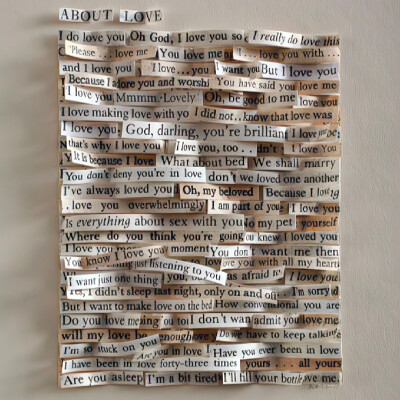 ABOUT LOVE
I do love you Oh God, I love you so I really do love this
"Please... love me You love me I... love you with...
and I love you I love... you I want you But I love you
Because I adore you and worship You have said you love me
I love you Mmmm. Lovely Oh, be good to me
I love making love with yo I did not.. know that love was
I love you God, darling, you're brilliant I love
that's why I love you I love you, too I love You
It is because I love What about bed We shall marry
You don't deny you're in love don't we loved one another
I've always loved you Oh, my beloved Because I
. love you overwhelmingly I am part of you I love you
Is everything about sex with you my pet yourself
Where do you think you're going you knew I loved you
I love you You know I love you moment You don't want me then
just listening to you love you with all my heart
I want just one thing you, as afraid to I love you
Yes, I didn't sleep last night, only on and off I'm sorry
But I want to make love on the bed How conventional you are
Do you love me ing to I don't want admit you love me
will my love enough Do we have to keep talking
I'm so stuck on you Are you in love Have you ever been in love
I have been in love forty-three times yours... all yours
Are you asleep I'm a bit tired I'll fill your bottle love me.